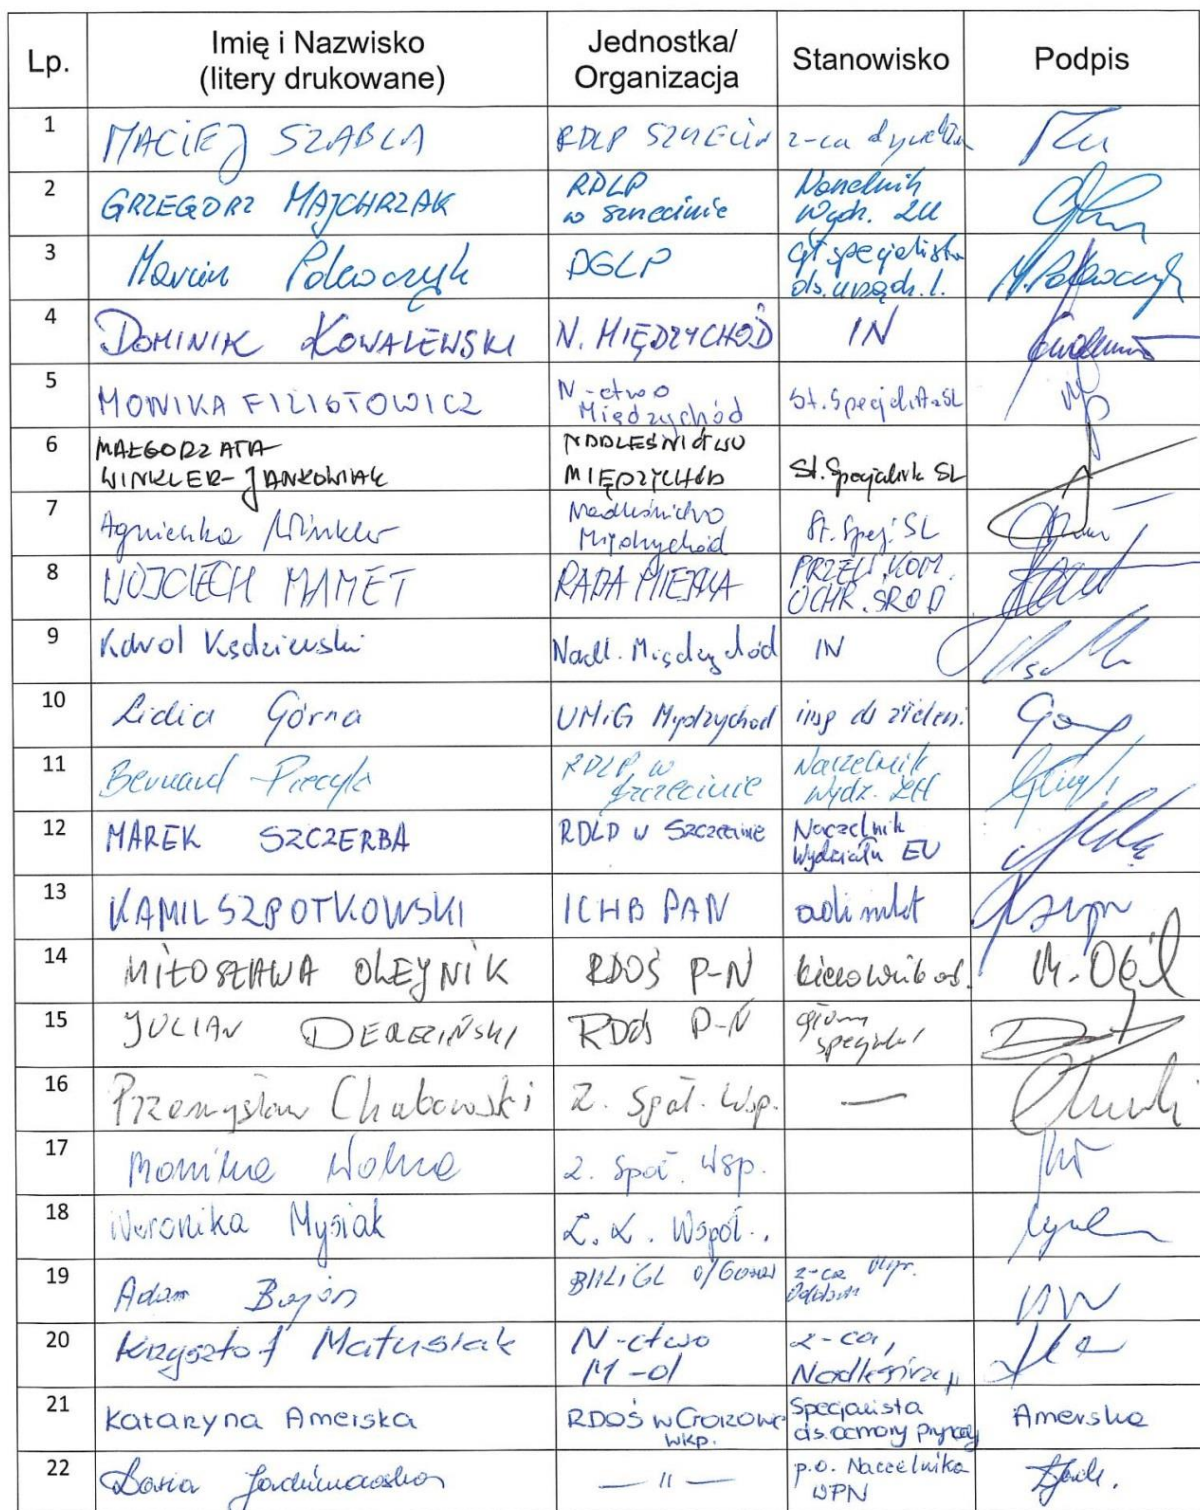 Lp. Imię i Nazwisko (litery drukowane) Jednostka/ Organizacja Stanowisko Podpis
1 MACIEJ SZABLA RDLP SZCZECIN z-ca dyrektora
2 GRZEGORZ MAJCHRZAK RDLP w Szczecinie Naczelnik Wydz. ZU
3 Marcin Polewczyk DGLP gł specjalista ds. urządz. l.
4 DOMINIK KOWALEWSKI N. MIĘDZYCHÓD IN
5 MONIKA FILIGTOWICZ N-ctwo Międzychód St. Specjalista SL
6 MAŁGORZATA WINKLER-JANKOWIAK NADLEŚNICTWO MIĘDZYCHÓD St. Specjalista SL
7 Agnieszka Winkler Nadleśnictwo Międzychód St. Spej. SL
8 WOJCIECH MAMET RADA MIEJSKA PRZEW. KOM. OCHR. ŚROD
9 Karol Kędzierski Nadl. Międzychód IN
10 Lidia Górna UMiG Międzychód insp ds zieleni.
11 Bernard RDLP w Szczecinie Naczelnik Wydz. ZH
12 MAREK SZCZERBA RDLP w Szczecinie Naczelnik Wydziału EU
13 KAMIL SZPOTKOWSKI ICHB PAN adiunkt
14 MIŁOSŁAWA OLEJNIK RDOŚ P-Ń kierownik od.
15 JULIAN DEREZIŃSKI RDOŚ P-Ń główny specjalist
16 Przemysław Chabowski Z. Społ. Wsp. —
17 Monika Wolna Z. Społ. Wsp.
18 Weronika Mysiak Z. Z. Wspól..
19 Adam Bajon BULiGL o/Gorzów z-ca Dyr. Oddziału
20 Krzysztof Matusiak N-ctwo M-d z-ca, Nadleśnicz.
21 Katarzyna Amerska RDOŚ w Gorzowie wkp. Specjalista ds. ochrony przyrody Amerska
22 Daria — 11 — p.o. Naczelnika WPN